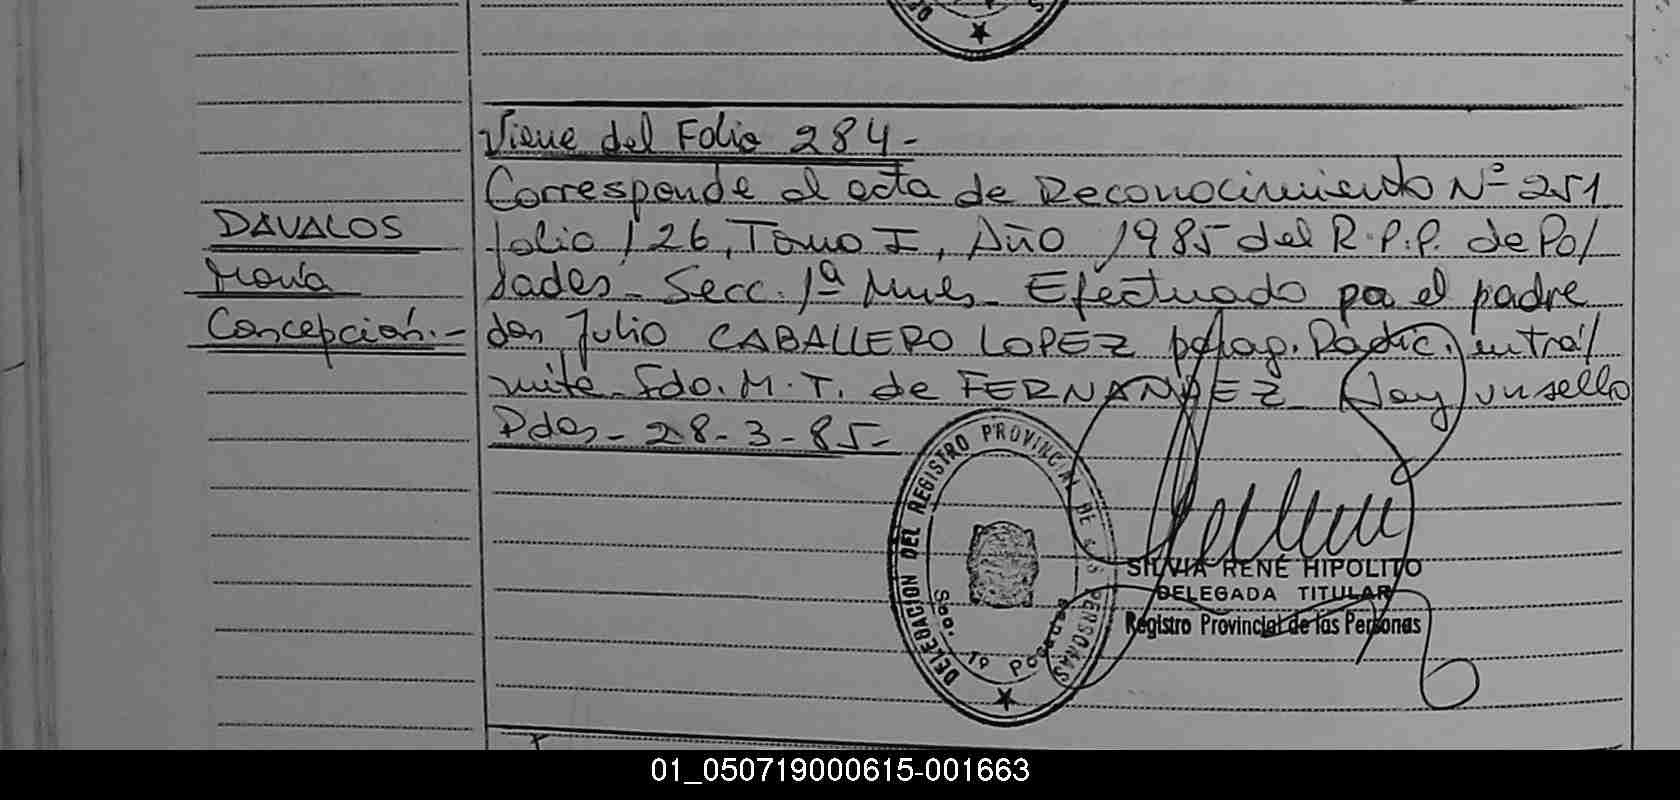 Viene del Folio 284-
Corresponde al acta de Reconocimiento Nº 251
DAVALOS
folio 126, Tomo I, Año 1985 del R.P.P. de Po/
María
sadas- Secc. 1ª Mnes- Efectuado por el padre
Concepción.-
don Julio CABALLERO LOPEZ p/pag. Radic. en trá/
mite- Fdo. M.T. de FERNANDEZ- Hay un sello
Pdas- 28-3-85-
DELEGACION DEL REGISTRO PROVINCIAL DE LAS PERSONAS
Sec. 1º Posadas
SILVIA RENÉ HIPOLITO
DELEGADA TITULAR
Registro Provincial de las Personas
01_050719000615-001663